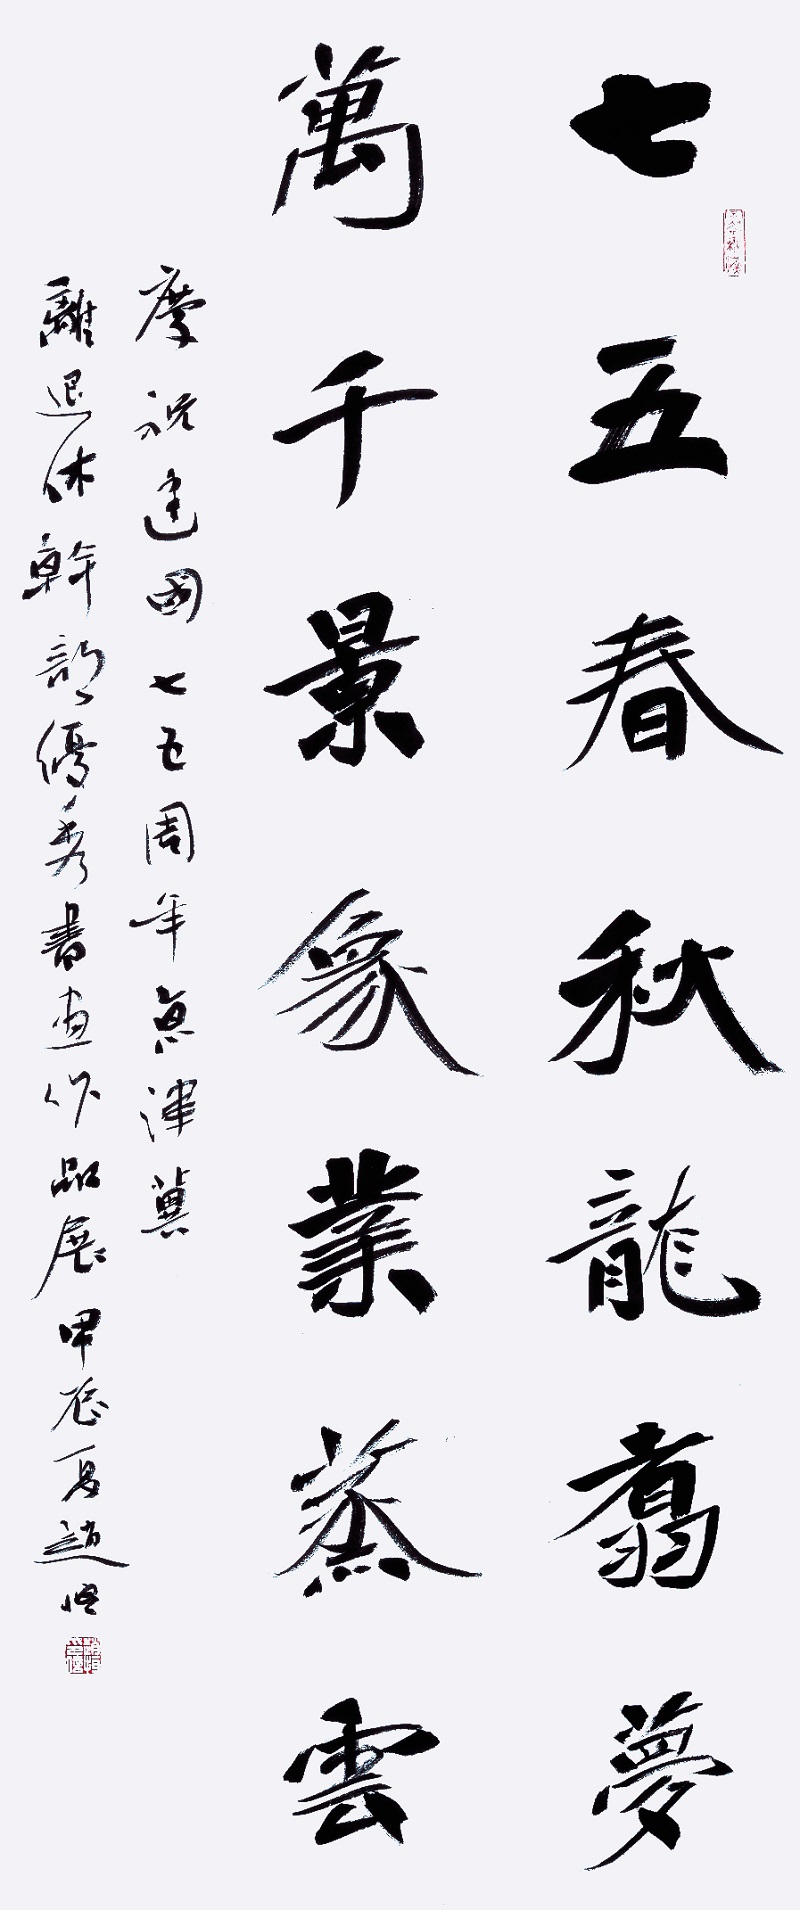 七五春秋龍翥夢
萬千景象業蒸雲
慶祝建國七五周年京津冀
離退休幹部優秀書畫作品展甲辰夏趙